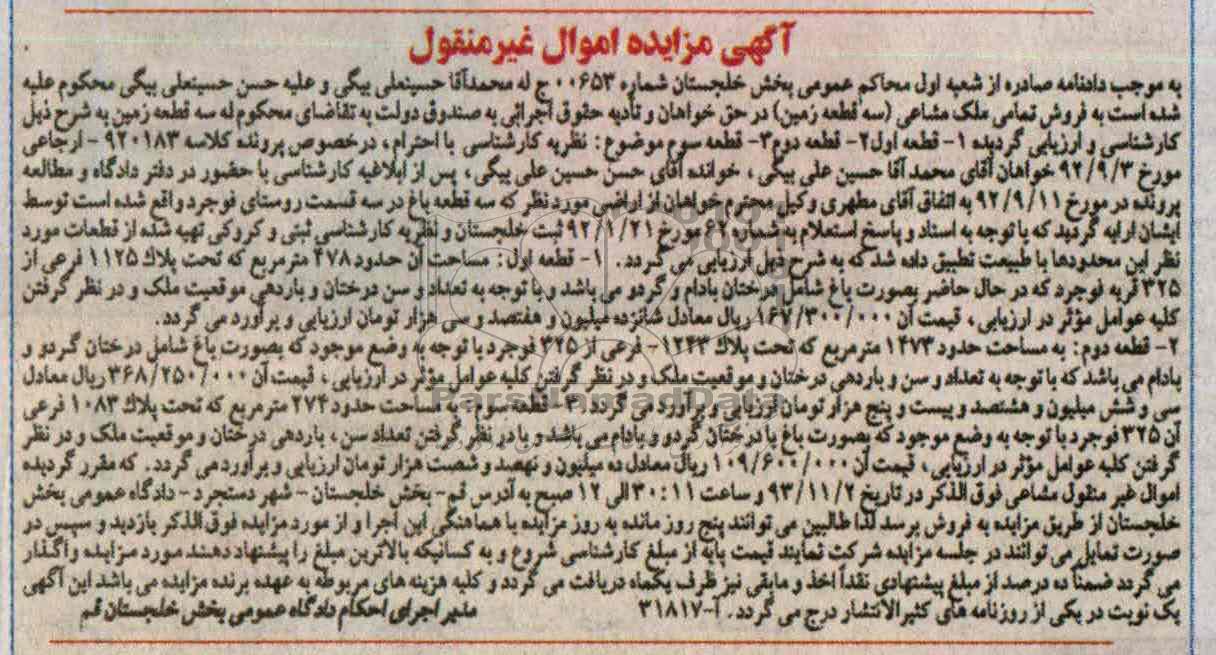 آگهی مزایده اموال غیرمنقول
به موجب دادنامه صادره از شعبه اول محاکم عمومی بخش خلجستان شماره ۰۰۶۵۳ ج له محمدآقا حسینعلی بیگی و علیه حسن حسینعلی بیگی محکوم علیه
شده است به فروش تمامی ملک مشاعی (سه قطعه زمین) در حق خواهان و تأدیه حقوق اجرایی به صندوق دولت به تقاضای محکوم له سه قطعه زمین به شرح ذیل
کارشناسی و ارزیابی گردیده ۱- قطعه اول ۲- قطعه دوم ۳- قطعه سوم موضوع: نظریه کارشناسی با احترام، درخصوص پرونده کلاسه ۹۲۰۱۸۳ - ارجاعی
مورخ ۹۲/۹/۳ خواهان آقای محمد آقا حسین علی بیگی، خوانده آقای حسن حسین علی بیگی، پس از ابلاغیه کارشناسی با حضور در دفتر دادگاه و مطالعه
پرونده در مورخ ۹۲/۹/۱۱ به اتفاق آقای مطهری وکیل محترم خواهان از اراضی مورد نظر که سه قطعه باغ در سه قسمت روستای فوجرد واقع شده است توسط
ایشان ارایه گردید که با توجه به اسناد و پاسخ استعلام به شماره ۶۲ مورخ ۹۲/۱/۲۱ ثبت خلجستان و نظریه کارشناسی ثبتی و کروکی تهیه شده از قطعات مورد
نظر این محدودها با طبیعت تطبیق داده شد که به شرح ذیل ارزیابی می گردد. ۱- قطعه اول: مساحت آن حدود ۴۷۸ مترمربع که تحت پلاک ۱۱۲۵ فرعی از
۳۲۵ قریه فوجرد که در حال حاضر بصورت باغ شامل درختان بادام و گردو می باشد و با توجه به تعداد و سن درختان و باردهی موقعیت ملک و در نظر گرفتن
کلیه عوامل مؤثر در ارزیابی، قیمت آن ۱۶۷/۳۰۰/۰۰۰ ریال معادل شانزده میلیون و هفتصد و سی هزار تومان ارزیابی و برآورد می گردد.
۲- قطعه دوم: به مساحت حدود ۱۴۷۳ مترمربع که تحت پلاک ۱۲۴۳- فرعی از ۳۲۵ فوجرد با توجه به وضع موجود که بصورت باغ شامل درختان گردو و
بادام می باشد که با توجه به تعداد و سن و باردهی درختان و موقعیت ملک و در نظر گرفتن کلیه عوامل مؤثر در ارزیابی، قیمت آن ۳۶۸/۲۵۰/۰۰۰ ریال معادل
سی و شش میلیون و هشتصد و بیست و پنج هزار تومان ارزیابی و برآورد می گردد. ۳- قطعه سوم: به مساحت حدود ۲۷۴ مترمربع که تحت پلاک ۱۰۸۳ فرعی
آن ۳۲۵ فوجرد با توجه به وضع موجود که بصورت باغ با درختان گردو و بادام می باشد و با در نظر گرفتن تعداد سن، باردهی درختان و موقعیت ملک و در نظر
گرفتن کلیه عوامل مؤثر در ارزیابی، قیمت آن ۱۰۹/۶۰۰/۰۰۰ ریال معادل ده میلیون و نهصد و شصت هزار تومان ارزیابی و برآورد می گردد. که مقرر گردیده
اموال غیر منقول مشاعی فوق الذکر در تاریخ ۹۳/۱۱/۲ و ساعت ۳۰:۱۱ الی ۱۲ صبح به آدرس قم- بخش خلجستان - شهر دستجرد - دادگاه عمومی بخش
خلجستان از طریق مزایده به فروش برسد لذا طالبین می توانند پنج روز مانده به روز مزایده با هماهنگی این اجرا و از مورد مزایده فوق الذکر بازدید و سپس در
صورت تمایل می توانند در جلسه مزایده شرکت نمایند قیمت پایه از مبلغ کارشناسی شروع و به کسانیکه بالاترین مبلغ را پیشنهاد دهند مورد مزایده واگذار
می گردد ضمناً ده درصد از مبلغ پیشنهادی نقداً اخذ و مابقی نیز ظرف یکماه دریافت می گردد و کلیه هزینه های مربوطه به عهده برنده مزایده می باشد این آگهی
یک نوبت در یکی از روزنامه های کثیرالانتشار درج می گردد. آ-۳۱۸۱۷
مدیر اجرای احکام دادگاه عمومی بخش خلجستان قم
ParsNamadData